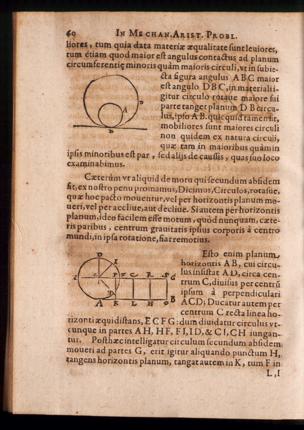 60 IN MECHAN. ARIST. PROBL.
liores, tum quia data materiæ æqualitate sunt leuiores,
tum etiam quod maior est angulus contactus ad planum
circumferentiæ minoris quàm maioris circuli, vt in subie-
cta figura angulus ABC maior
est angulo DBC, in materiali i-
gitur circulo rotaue maiore sui
parte tanget planum DB circu-
lus, ipso AB. quicquid tamen sit,
mobiliores sunt maiores circuli
non quidem ex natura circuli,
quæ tam in maioribus quàm in
ipsis minoribus est par, sed alijs de caussis, quas suo loco
examinabimus.
Cæterùm vt aliquid de motu qui secundum absidem
fit, ex nostro penu promamus, Dicimus, Circulos, rotasue,
quæ hoc pacto mouentur, vel per horizontis planum mo-
ueri, vel per accliue, aut decliue. Si autem per horizontis
planum, ideo facilem esse motum, quòd nunquam, cæte-
ris paribus, centrum grauitatis ipsius corporis à centro
mundi, in ipsa rotatione, fiat remotius.
Esto enim planum,
horizontis AB, cui circu-
lus insistat AD, circa cen-
trum C, diuisus per centrũ
ipsum à perpendiculari
ACD; Ducatur autem per
centrum C recta linea ho-
rizonti æquidistans, ECFG: dum diuidatur circulus vt-
cunque in partes AH, HF, FI, ID, & CI, CH iungan-
tur. Posthæc intelligatur circulum secundum absidem
moueri ad partes G, erit igitur aliquando punctum H,
tangens horizontis planum, tangat autem in K, tum F in
L, I